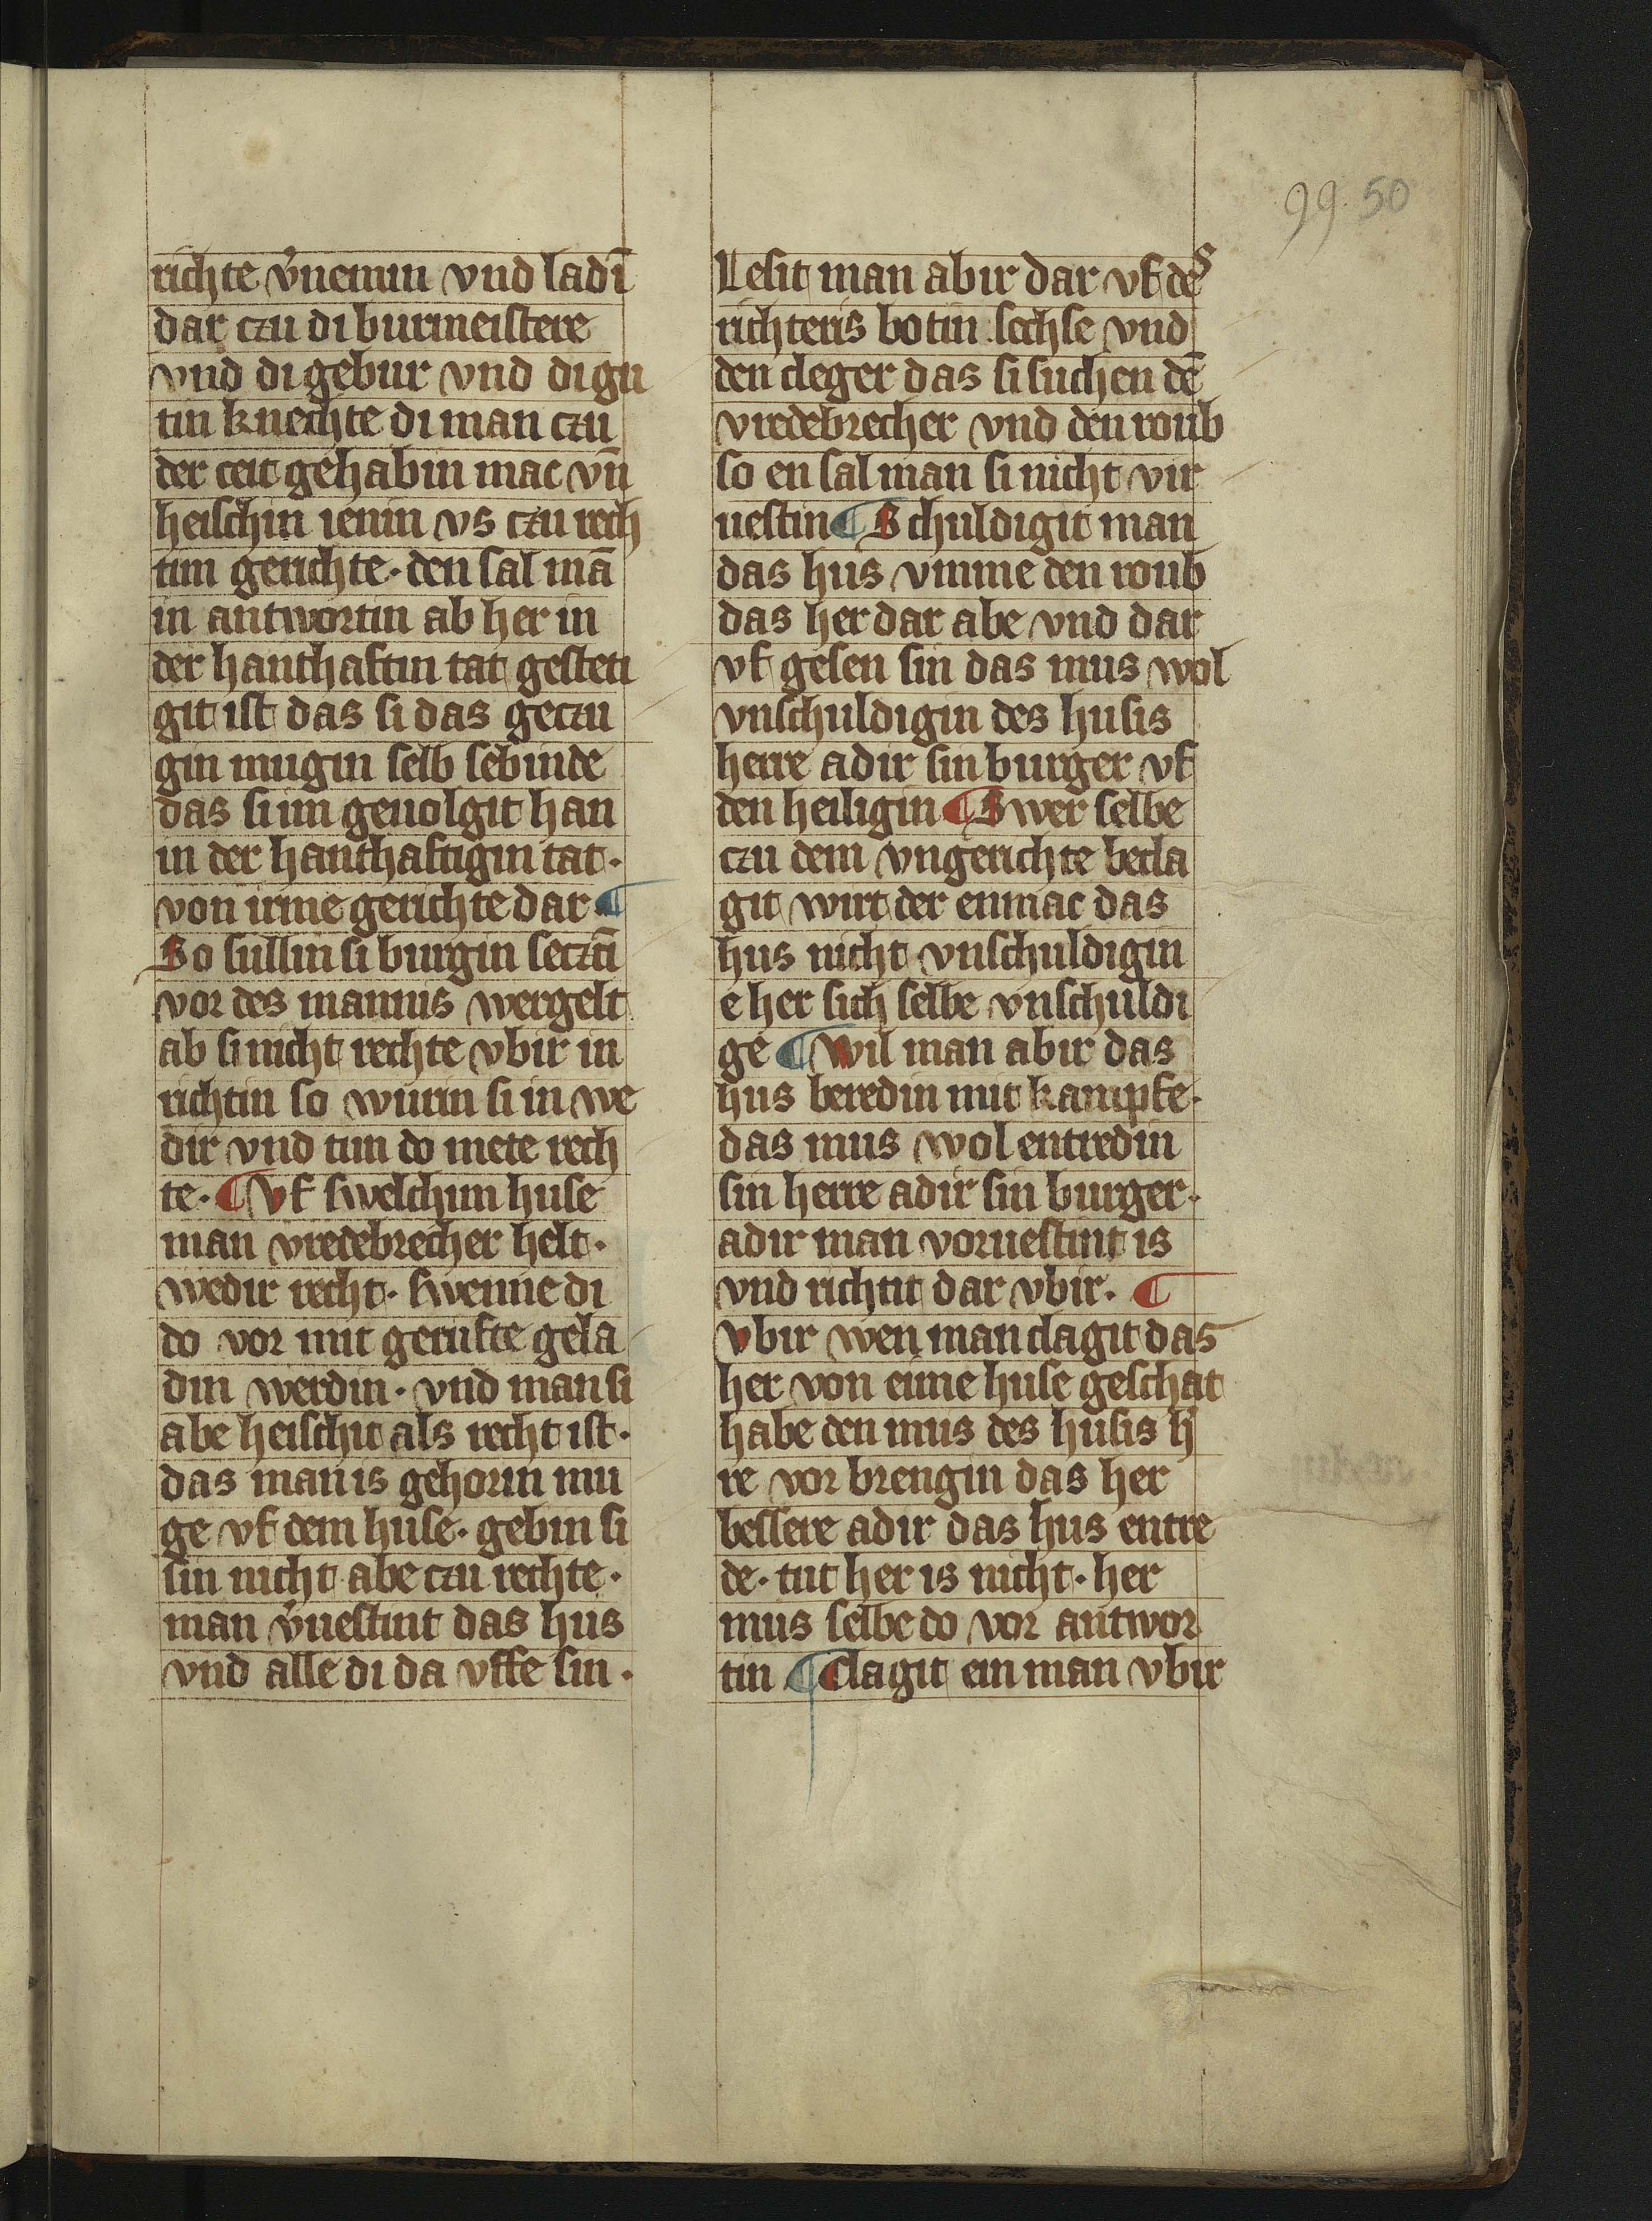 99. 50
richte v̓nemin vnd ladī
dar czu di burmeistere
vnd di gebur vnd di gu
tin knechte di man czu
der ceit gehabin mac vn̄
heischin ienin vs czu rech
tim gerichte· den sal mā
in antwortin ab her in
der hanthaftin tat gesteti
git ist das si das geczu
gin mugin selb sebinde
das si im geuolgit han
in der hanthaftigin tat·
von irme gerichte dar ¶
So sullin si burgin seczcī
vor des mannis wergelt
ab si nicht rechte vbir in
richtin so wurin si in we
dir vnd tun do mete rech
te· ¶ Vf swelchim huse
man vredebrecher helt·
wedir recht· swenne di
do vor mit gerufte gela
din werdin· vnd man si
abe heischit als recht ist·
das man is gehorin mu
ge vf dem huse· gebin si
sin nicht abe czu rechte·
man v̓uestint das hus
vnd alle di da vffe sin·
Lesit man abir dar vf des
richteris botin sechse vnd
den cleger das si suchen dē
vredebrecher vnd den roub
so en sal man si nicht vir
uestin ¶ Schuldigit man
das hus vmme den roub
das her dar abe vnd dar
vf gesen sin das mus wol
vnschuldigin des husis
herre adir sin burger vf
den heiligin ¶ Swer selbe
czu dem vngerichte becla
git wirt der enmac das
hus nicht vnschuldigin
e her sich selbe vnschuldi
ge ¶ Wil man abir das
hus beredin mit kampfe·
das mus wol entredin
sin herre adir sin burger·
adir man voruestint is
vnd richtit dar vbir· ¶
Vbir wen man clagit das
her von eime huse geschat
habe den mus des husis h̓
re vor brengin das her
bessere adir das hus entre
de· tut her is nicht· her
mus selbe do vor antwor
tin ¶ Clagit ein man vbir